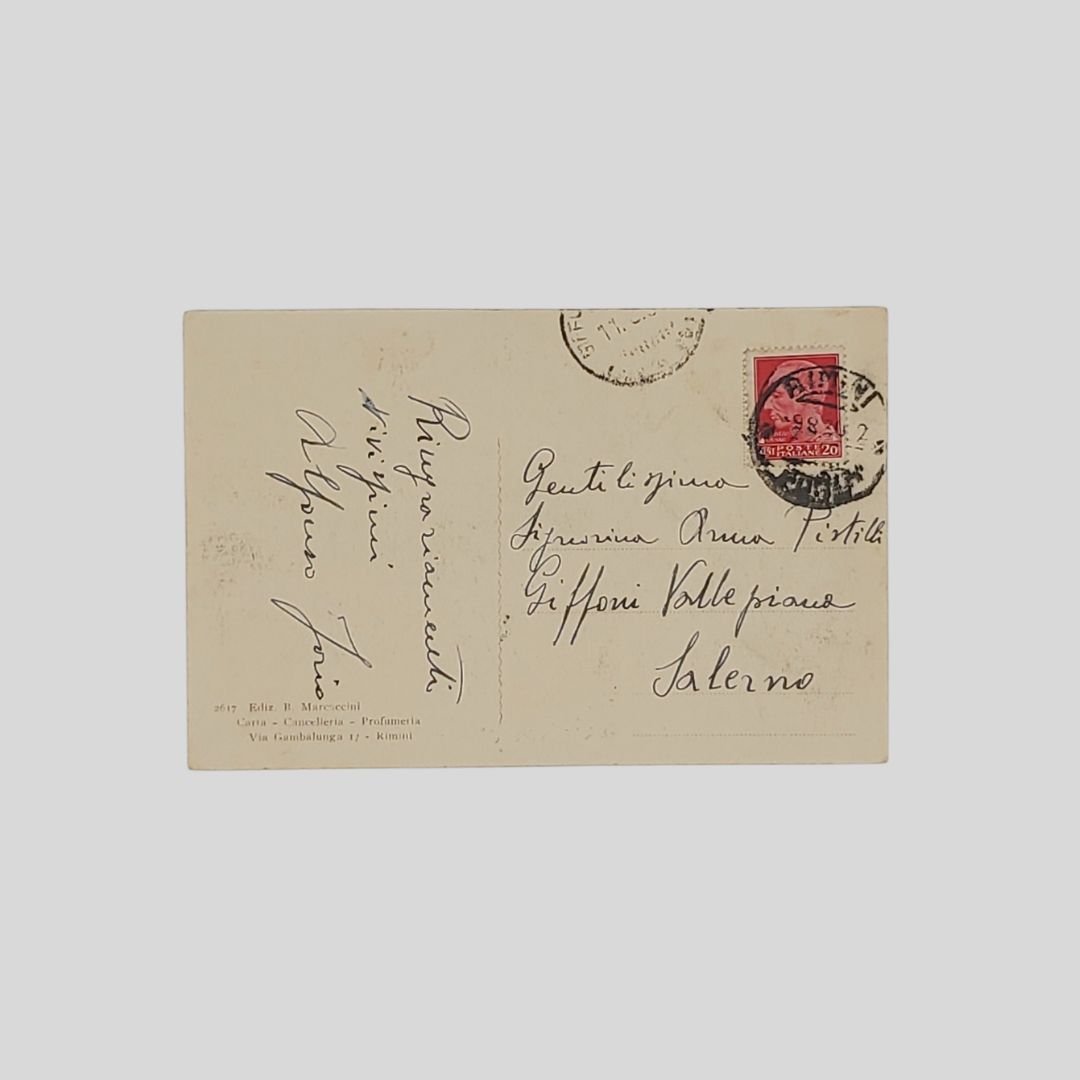 Ringraziamenti
vivissimi
Alfonso Iorio
Gentilissima
Signorina Anna Pistilli
Giffoni Vallepiana
Salerno
2617 Ediz. B. Marcaccini
Carta - Cancelleria - Profumeria
Via Gambalunga 17 - Rimini
POSTE
ITALIANE 20
RIMINI